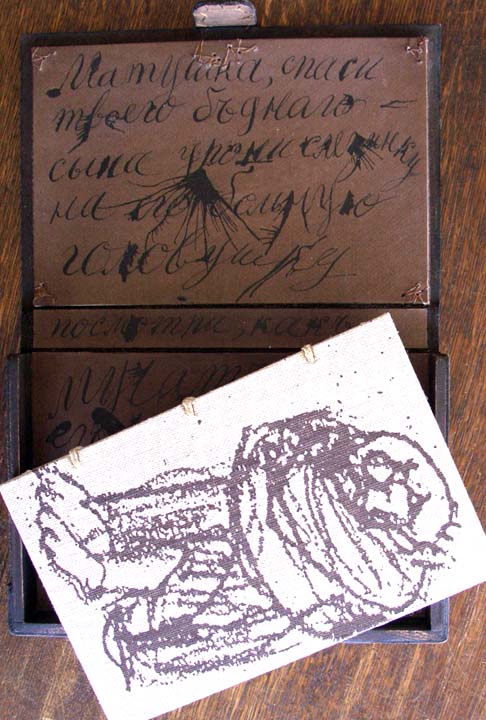 Матушка, спаси
твоего бѣднаго -
сына урони слезинку
на его больную
головушку
посмотри, какъ
мучат
его